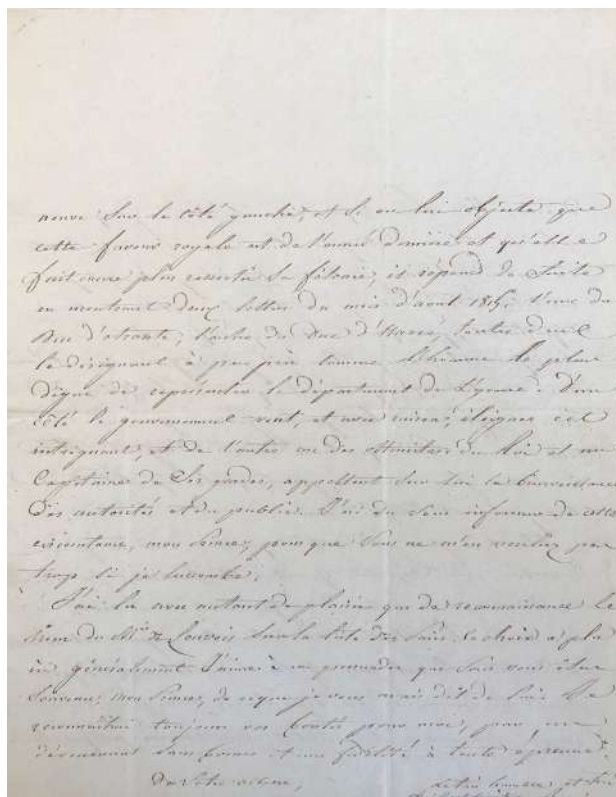 neuve sur le côté gauche, et si on lui objecte, que
cette faveur royale est de l'année dernière et qu'elle
fait encore plus ressortir sa félonie, il répond de suite
en montrant deux lettres du mois d'août 1815, l'une du
Duc d'otrante, l'autre du Duc d'Havré, toutes deux
le désignant à peu près comme l'homme le plus
digne de représenter le département de l'yonne. D'un
côté le gouvernement veut, et avec raison, éloigner cet
intrigant, et de l'autre un des Ministres du Roi et un
Capitaine de ses gardes, appellent sur lui la bienveillance
des autorités et du public. J'ai du vous informer de cette
circonstance, mon Prince, pour que vous ne m'en vouliez pas
trop si je succombe.
J'ai lu avec autant de plaisir que de reconnaissance le
nom du M.is de Louvois sur la liste des Pairs. Ce choix a plu
ici généralement. J'aime à me persuader que vous vous êtes
souvenu, mon Prince, de ce que je vous avais dit de lui. Je
reconnaîtrai toujours vos bontés pour moi, par un
dévouement sans bornes et une fidélité à toute épreuve.
De Votre altesse,
Le très humble et très